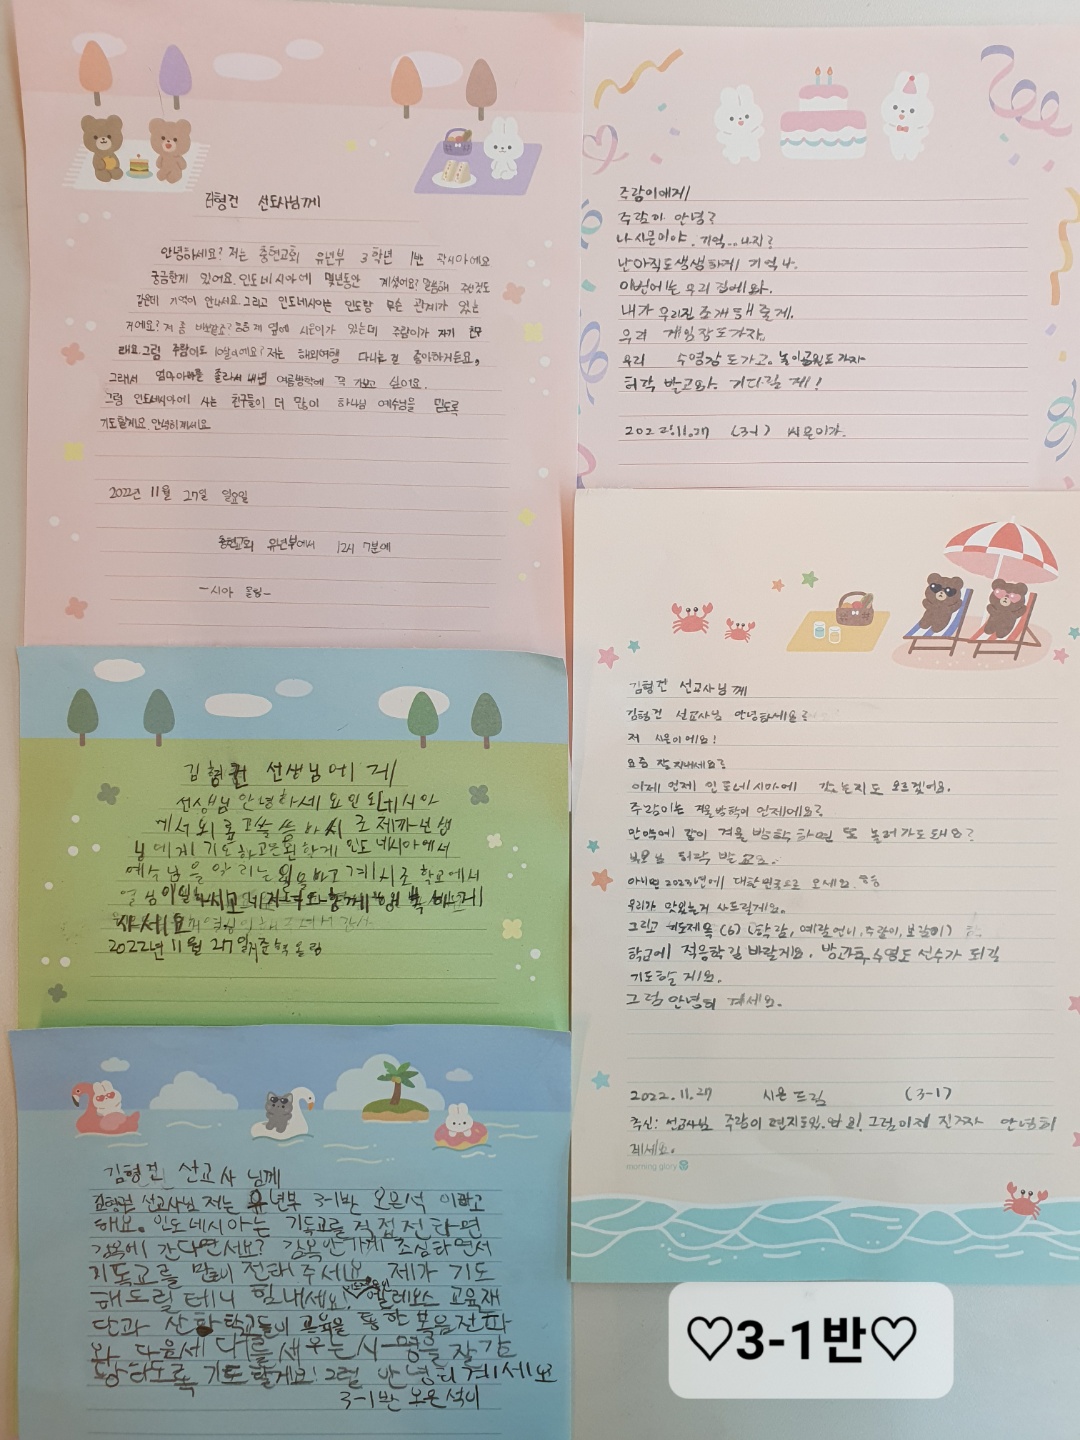 김형건 선교사님께
안녕하세요? 저는 충현교회 유년부 3학년 1반 곽시아예요
궁금한게 있어요. 인도네시아에 몇년동안 계셨어요? 말씀해 주신것도
같은데 기억이 안나네요. 그리고 인도네시아는 인도랑 무슨 관계가 있는
거예요? 제 옆에 시은이가 있는데 주람이가 자기 친구
래요. 그럼 주람이도 10살이예요? 저는 해외여행 다니는 걸 좋아하거든요,
그래서 엄마아빠를 졸라서 내년 여름방학에 꼭 가보고 싶어요.
그럼 인도네시아에 사는 친구들이 더 많이 하나님 예수님을 믿도록
기도할게요. 안녕히계세요
2022년 11월 27일 일요일
충현교회 유년부에서 12시 7분에
-시아 올림-
주람이에게
주람아 안녕?
나 시은이야. 기억...나지?
난 아직도 생생하게 기억나.
이번에는 우리 집에 와.
내가 우리집 소개해 줄게.
우리 게임장도 가자.
우리 수영장도 가고. 놀이공원도 가자
허락 받고와. 기다릴게!
2022.11.27 (3-1) 시은이가.
김형건 선교사님께
김형건 선교사님 안녕하세요?
저 시은이예요!
요즘 잘 지내세요?
이제 언제 인도네시아에 갔는지도 모르겠어요.
주람이는 겨울방학이 언제예요?
만약에 같이 겨울 방학 하면 또 놀러가도 돼요?
부모님 허락 받고요.
아니면 2023년에 대한민국으로 오세요.
우리가 맛있는거 사드릴게요.
그리고 기도제목 (6) (학람, 예람언니, 주람이, 보람이)
학교에 적응하길 바랄게요. 방과후 수영도 선수가 되길
기도할게요.
그럼 안녕히 계세요.
2022.11.27 시은 드림 (3-1)
추신: 선교사님 주람이 편지도있어요! 그럼 이제 진짜 안녕히
계세요.
morning glory
김형건 선생님에게
선생님 안녕하세요 인도네시아
에서 외롭고 쓸쓸하시죠 제가 선생
님에게 기도하고 응원할게 인도네시아에서
예수님을 알리는 일을 하고 계시죠 학교에서
열심히 일하시고 가족도 함께 행복하게
사세요
2022년 11월 27일 준혁 올림
김형건 선교사님께
김형건 선교사님 저는 유년부 3-1반 오은석 이라고
해요. 인도네시아는 기독교를 직접 전하면
감옥에 간다면서요? 감옥 안가게 조심하면서
기독교를 많이 전해 주세요 제가 기도
해드릴테니 힘내세요! 깔레보스 교육재
단과 산하 학교들이 교육을 통한 복음전파
와 다음세대를 세우는 사명을 잘 감
당하도록 기도할게요! 그럼 안녕히계세요
3-1반 오은석이
♡3-1반♡